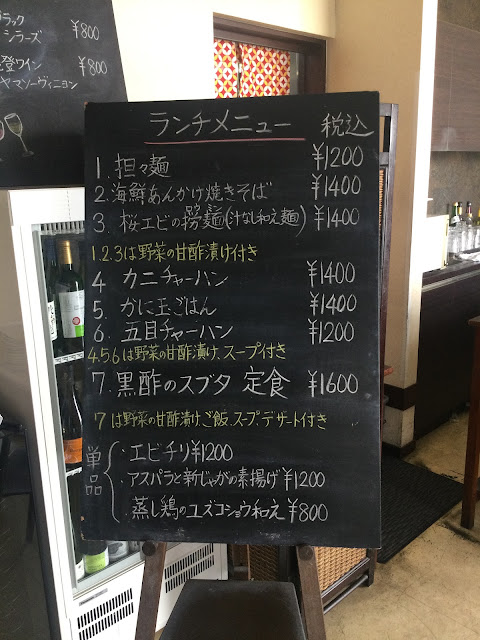 ラック
シラーズ ¥800
登ワイン ¥800
ヤマソーヴィニョン
ランチメニュー 税込
1. 担々麺 ¥1200
2. 海鮮あんかけ焼きそば ¥1400
3. 桜エビの撈麺(汁なし和え麺) ¥1400
ロウ メン
1.2.3は野菜の甘酢漬け付き
4 カニチャーハン ¥1400
5. かに玉ごはん ¥1400
6. 五目チャーハン ¥1200
4.5.6は野菜の甘酢漬け、スープ付き
7. 黒酢のスブタ 定食 ¥1600
7は野菜の甘酢漬け、ご飯、スープ、デザート付き
単品
・エビチリ ¥1200
・アスパラと新じゃがの素揚げ ¥1200
・蒸し鶏のユズコショウ和え ¥800